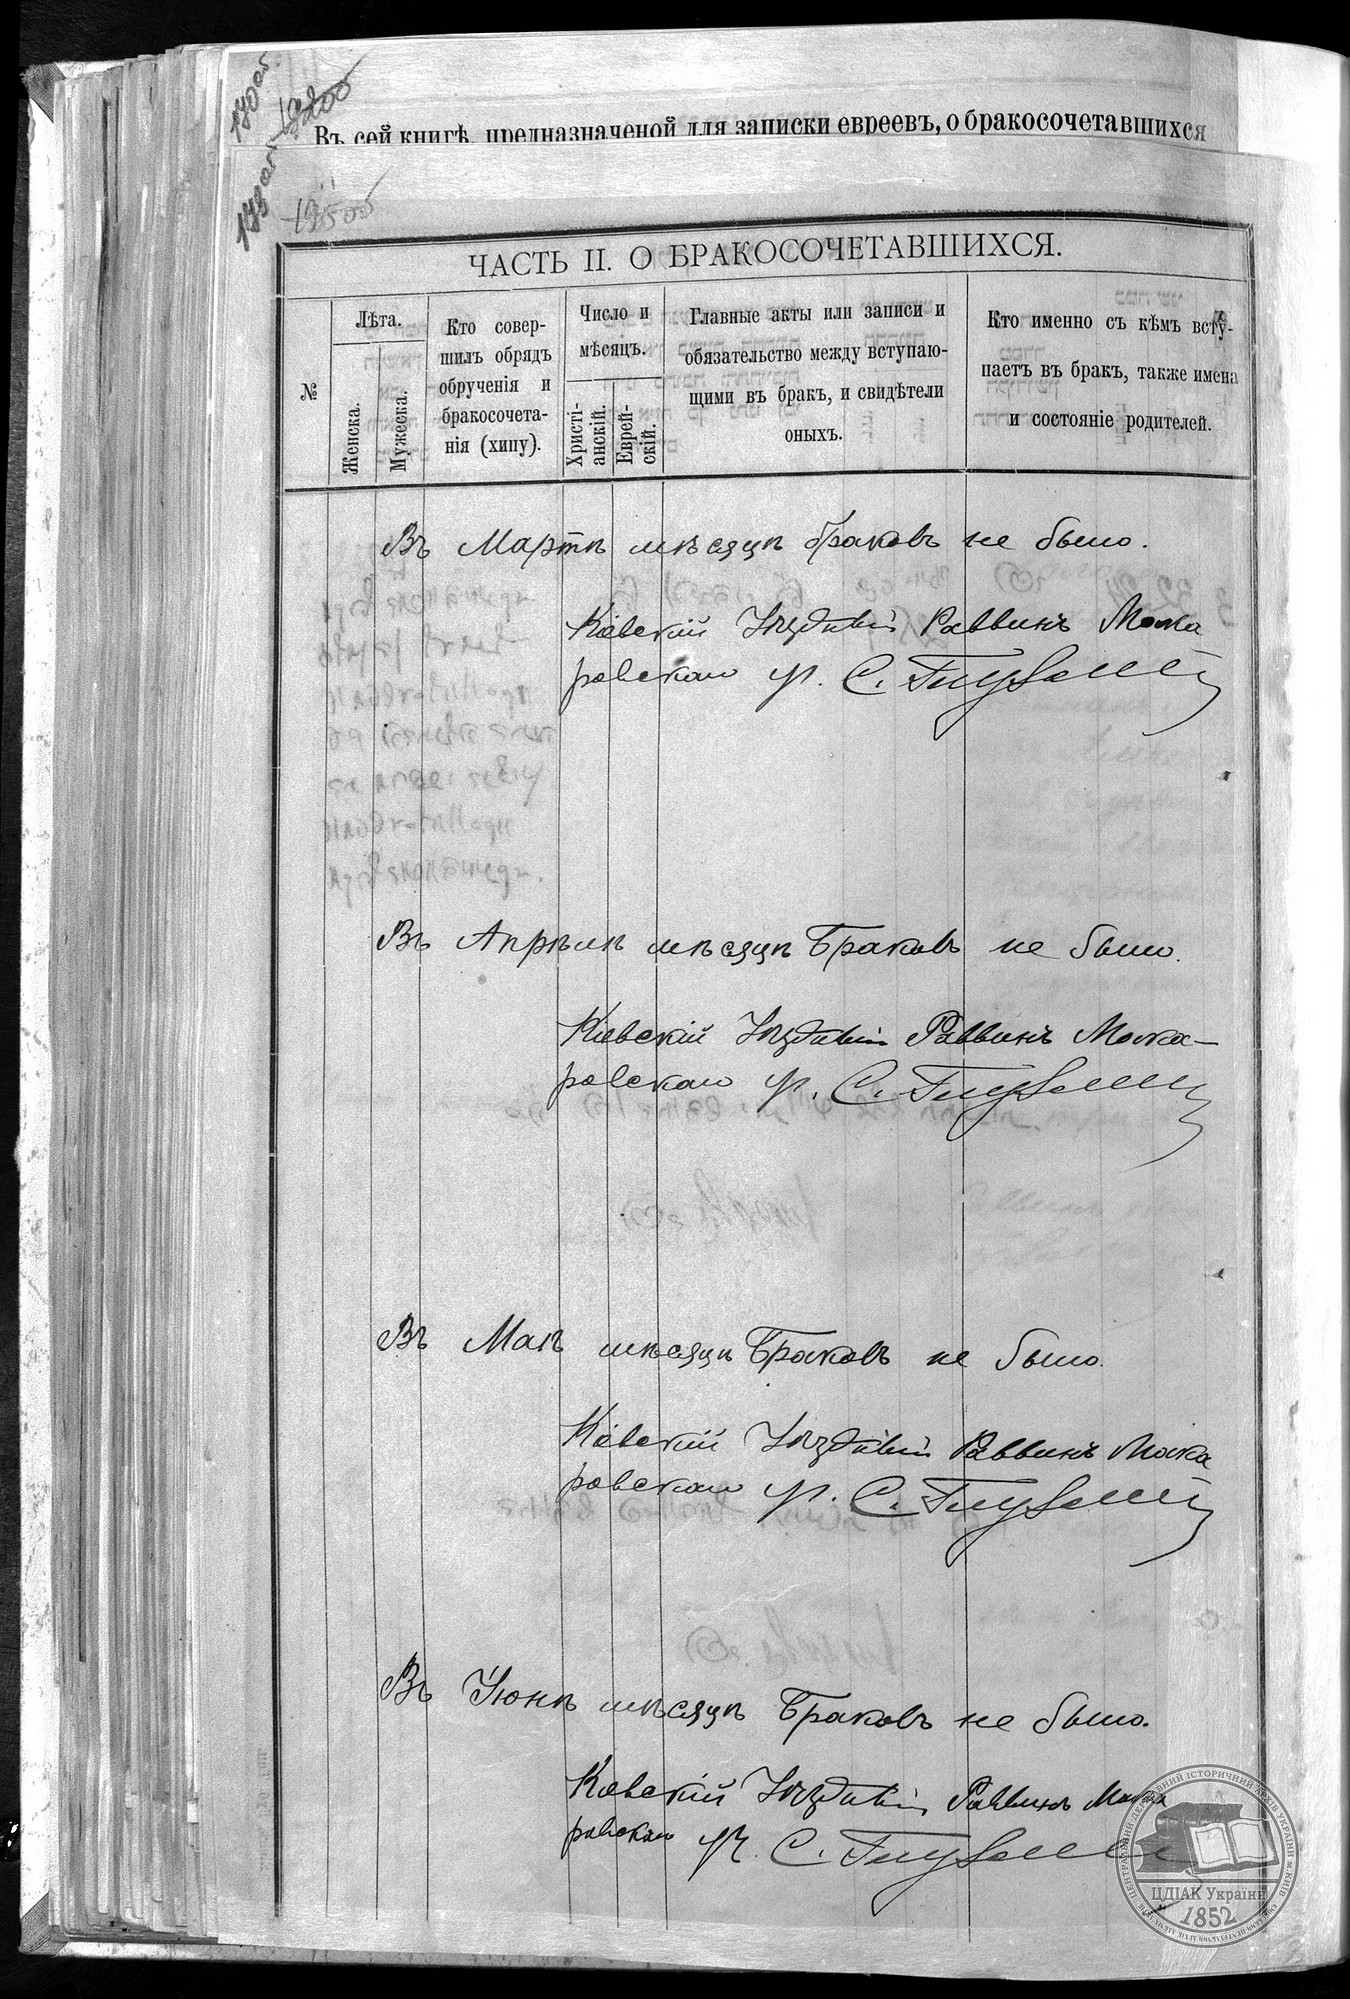 170 об.
1200
Въ сей книгѣ, предназначеной для записки евреевъ, о бракосочетавшихся
173
ЧАСТЬ II. О БРАКОСОЧЕТАВШИХСЯ.
№
Лѣта.
Женска.
Мужеска.
Кто совер-
шилъ обрядъ
обрученія и
бракосочета-
нія (хипу).
Число и
мѣсяцъ.
Христі-
анскій.
Еврей-
скій.
Главные акты или записи и
обязательство между вступаю-
щими въ бракъ, и свидѣтели
оныхъ.
Кто именно съ кѣмъ всту-
паетъ въ бракъ, также имена
и состояніе родителей.
Въ Мартѣ мѣсяцѣ браковъ не было.
Кіевскій Уѣздный Раввинъ Мака
ровскаго уч. С.
Въ Апрѣлѣ мѣсяцѣ Браковъ не было.
Кіевскій Уѣздный Раввинъ Мака-
ровскаго уч. С.
Въ Маѣ мѣсяцѣ Браковъ не было.
Кіевскій Уѣздный Раввинъ Мака
ровскаго уч. С.
Въ Іюнѣ мѣсяцѣ Браковъ не было.
Кіевскій Уѣздный Раввинъ Мака
ровскаго уч. С.
ЦЕНТРАЛЬНИЙ ДЕРЖАВНИЙ ІСТОРИЧНИЙ АРХІВ УКРАЇНИ м. КИЇВ
ЦДІАК України
1852